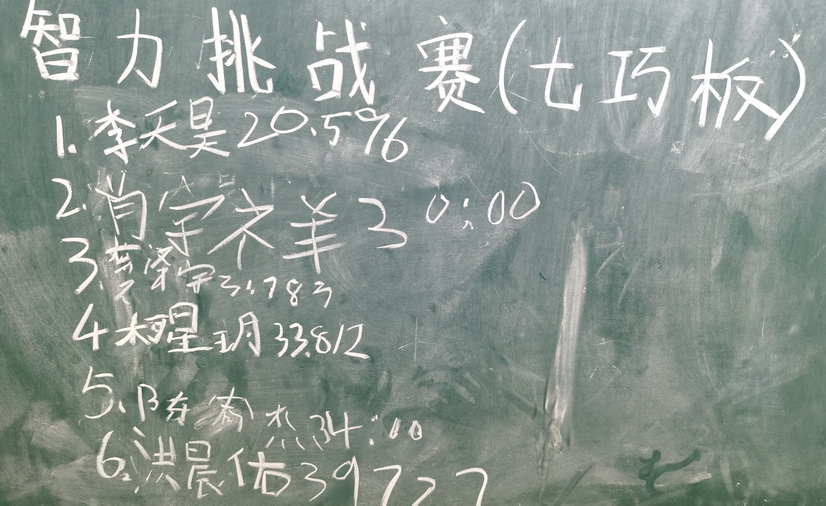 智力挑战赛(七巧板)
1. 李天昊 20.596
2. 肖宇祥 30:00
3. 泽宇 31.783
4 星玥 33.812
5. 陈 杰 34:00
6. 洪晨佑 39727